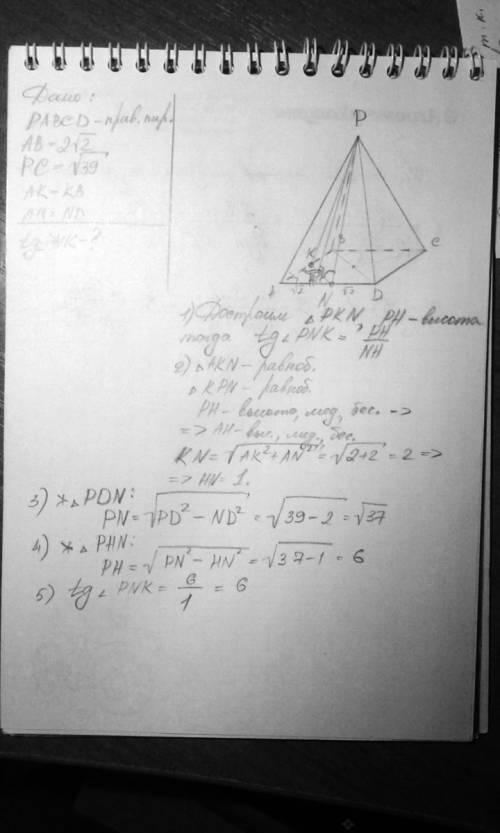 Дано:
PABCD - прав. пир.
AB = 2√2
PC = √39
AK = KB
AN = ND
tg PNK - ?
P
B
C
K
A
√2
N
√2
D
1) Достроим △PKN, PH - высота
тогда tg∠PNK = PH/NH
2) △AKN - равноб.
△KPN - равноб.
PH - высота, мед., бис. ->
=> AH - выс., мед., бис.
KN = √AK²+AN² = √2+2 = 2 =>
=> HN = 1.
3) *△PDN:
PN = √PD² - ND² = √39 - 2 = √37
4) *△PHN:
PH = √PN² - HN² = √37-1 = 6
5) tg∠PNK = 6/1 = 6
т. к.